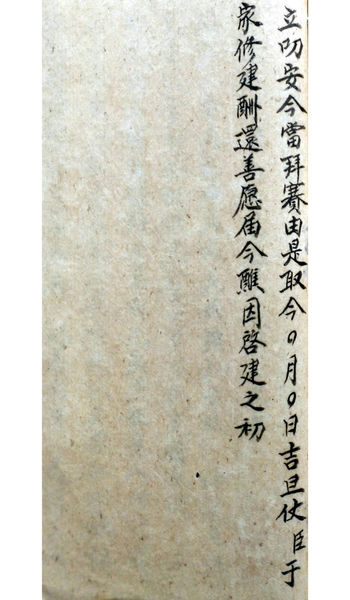 立叨安今當拜賽由是取今〇月〇日吉旦仗臣于
家修建酬還善愿届今醮因啓建之初